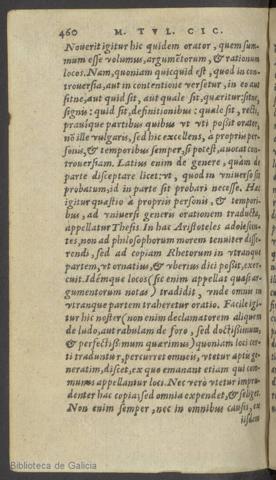 460 M. TVL. CIC.
Nouerit igitur hic quidem orator, quem sum-
mum esse volumus, argumẽtorum, & rationum
locos. Nam, quoniam quicquid est, quod in con-
trouersia, aut in contentione versetur, in eo aut
sitne, aut quid sit, aut quale sit, quæritur: sitne,
signis: quid sit, definitionibus: quale sit, recti,
prauique partibus quibus vt vti possit orator,
nõ ille vulgaris, sed hic excellens, à proprijs per-
sonis, & temporibus semper, si potest, auocat con-
trouersiam. Latius enim de genere, quàm de
parte disceptare licet: vt, quod in vniuerso sit
probatum, id in parte sit probari necesse. Hæc
igitur quæstio à proprijs personis, & tempori-
bus, ad vniuersi generis orationem traducta,
appellatur Thesis. In hac Aristoteles adolescen-
tes, non ad philosophorum morem tenuiter disse-
rendi, sed ad copiam Rhetorum in vtranque
partem, vt ornatius, & vberius dici possit, exer-
cuit. Idémque locos (sic enim appellat quasi ar-
gumentorum notas) tradidit, vnde omnis in
vtranque partem traheretur oratio. Facile igi-
tur hic noster (non enim declamatorem aliquem
de ludo, aut rabulam de foro, sed doctissimum,
& perfectissimum quærimus) quoniam loci cer-
ti traduntur, percurret omneis, vtetur aptis, ge-
neratim, discet, ex quo emanant etiam qui com-
munes appellantur loci. Nec verò vtetur impru-
denter hac copia; sed omnia expendet, & seliget.
Non enim semper, nec in omnibus causis, ex
iisdem
Biblioteca de Galicia